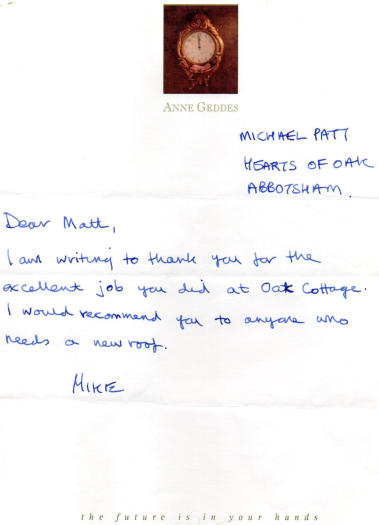 ANNE GEDDES
MICHAEL PATT
HEARTS OF OAK
ABBOTSHAM.
Dear Matt,
I am writing to thank you for the
excellent job you did at Oak Cottage.
I would recommend you to anyone who
needs a new roof.
MIKE
the future is in your hands